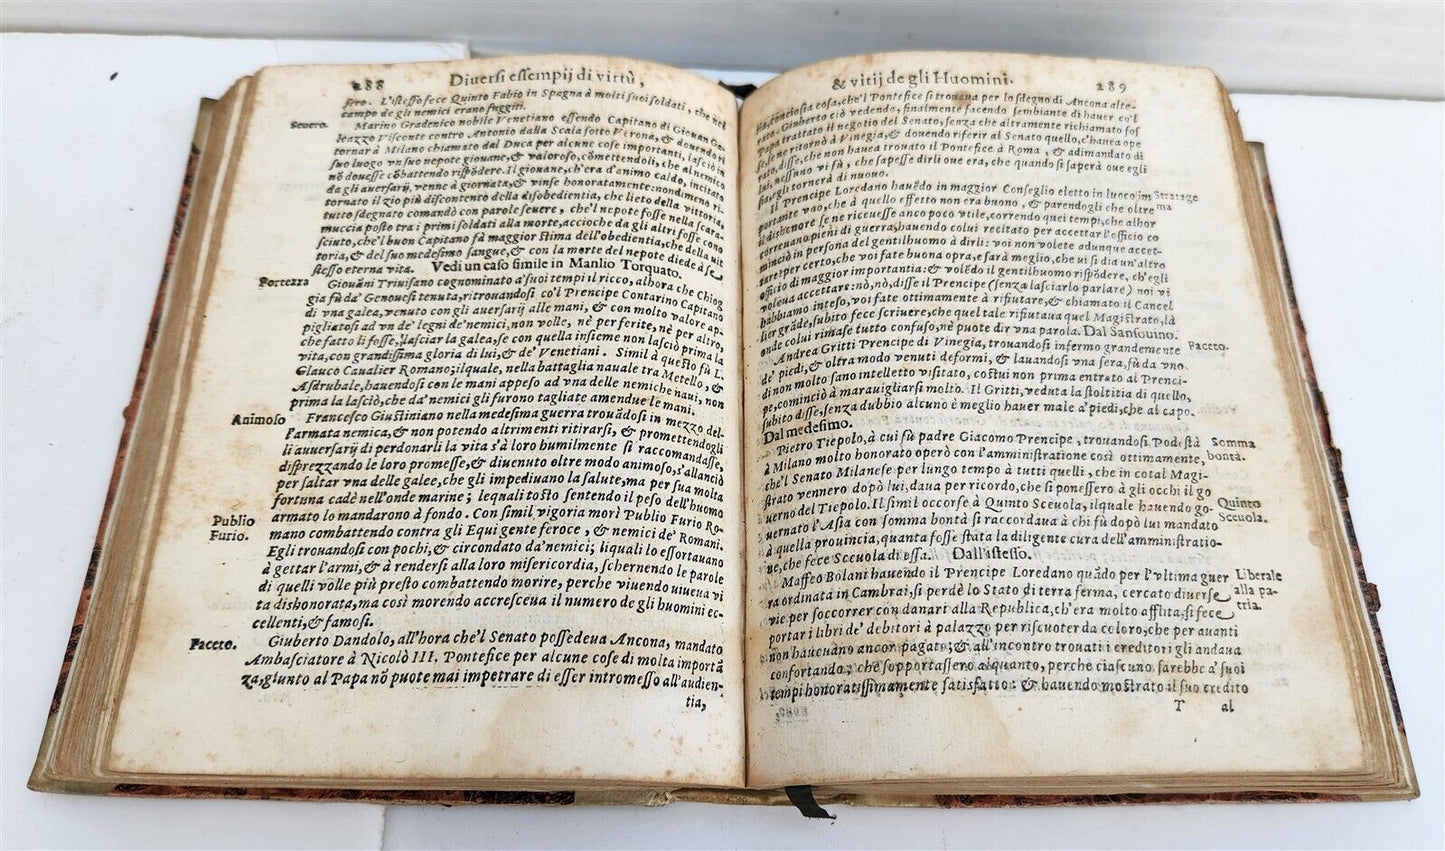 288 Diuersi essempij di virtù,
fero. L'istesso fece Quinto Fabio in Spagna à molti suoi soldati, che nel
campo de gli nemici erano fuggiti.
Seuero. Marino Gradenico nobile Venetiano essendo Capitano di Giouan Ga-
leazzo Visconte contro Antonio dalla Scala sotto Verona, & douendo ri
tornar à Milano chiamato dal Duca per alcune cose importanti, lasciò in
suo luogo vn suo nepote giouane, & valoroso, cõmettendoli, che al nemico
nõ douesse cõbattendo rispõdere. Il giouane, ch'era d'animo caldo, incitato
da gli auersarij, venne à giornata, & vinse honoratamente: nondimeno ri-
tornato il zio più discontento della disobedientia, che lieto della vittoria,
tutto sdegnato comandò con parole seuere, che'l nepote fosse nella scara-
muccia posto tra i primi soldati alla morte, accioche da gli altri fosse cono
sciuto, che'l buon Capitano fà maggior stima dell'obedientia, che della vit
toria, & del suo medesimo sangue, & con la morte del nepote diede à se
stesso eterna vita. Vedi un caso simile in Manlio Torquato.
Fortezza Giouãni Triuisano cognominato a'suoi tempi il ricco, alhora che Chiog
gia fù da' Genouesi tenuta, ritrouandosi co'l Prencipe Contarino Capitano
di vna galea, venuto con gli auersarij alle mani, & con molto valore ap-
pigliatosi ad vn de' legni de'nemici, non volle, nè per ferite, nè per altro,
che fatto li fosse, lasciar la galea, se con quella insieme non lasciò prima la
vita, con grandissima gloria di lui, & de' Venetiani. Simil à questo fù L.
Glauco Caualier Romano; ilquale, nella battaglia nauale tra Metello, &
Asdrubale, hauendosi con le mani appeso ad vna delle nemiche naui, non
prima la lasciò, che da'nemici gli furono tagliate amendue le mani.
Animoso Francesco Giustiniano nella medesima guerra trouãdosi in mezzo del-
l'armata nemica, & non potendo altrimenti ritirarsi, & promettendogli
li auuersarij di perdonarli la vita s'à loro humilmente si raccomandasse,
disprezzando le loro promesse, & diuenuto oltre modo animoso, s'allanciò
per saltar vna delle galee, che gli impediuano la salute, ma per sua molta
fortuna cadè nell'onde marine; lequali tosto sentendo il peso dell'huomo
armato lo mandarono à fondo. Con simil vigoria morì Publio Furio Ro-
Publio mano combattendo contra gli Equi gente feroce, & nemici de' Romani.
Furio. Egli trouandosi con pochi, & circondato da'nemici; liquali lo essortauano
à gettar l'armi, & à rendersi alla loro misericordia, schernendo le parole
di quelli volle più presto combattendo morire, perche viuendo uiueua vi
ta dishonorata, ma così morendo accresceua il numero de gli huomini ec-
cellenti, & famosi.
Faceto. Giuberto Dandolo, all'hora che'l Senato possedeua Ancona, mandato
Ambasciatore à Nicolò III. Pontefice per alcune cose di molta importã
za, giunto al Papa nõ puote mai impetrare di esser intromesso all'audien-
tia,
& vitij de gli Huomini. 289
tia, conciosia cosa, che'l Pontefice si trouaua per lo sdegno di Ancona alte-
rato. Gimberto ciò vedendo, finalmente facendo sembiante di hauer co'l
Papa trattato il negotio del Senato, senza che altramente richiamato fos
se, se ne ritornò à Vinegia, & douendo riferir al Senato quello, c'hauea ope
rato, disse, che non hauea trouato il Pontefice à Roma, & adimandato di
lui, nessuno vi fù, che sapesse dirli oue era, che quando si saperà oue egli
sia, egli tornerà di nuouo.
Il Prencipe Loredano hauẽdo in maggior Conseglio eletto in luoco im Stratage
portante vno, che à quello effetto non era buono, & parendogli che oltre ma
il dishonore se ne riceuesse anco poco vtile, correndo quei tempi, che alhor
correuano pieni di guerra, hauendo colui recitato per accettar l'officio co
minciò in persona del gentilhuomo à dirli: voi non volete adunque accet-
tare? per certo, che voi fate buona opra, e sarà meglio, che ui si dia un'altro
officio di maggior importantia: & volẽdo il gentilhuomo rispõdere, ch'egli
voleua accettare: nò, nò, disse il Prencipe (senza lasciarlo parlare) noi vi
habbiamo inteso, voi fate ottimamente à rifiutare, & chiamato il Cancel
lier grãde, subito fece scriuere, che quel tale rifiutaua quel Magistrato, là
onde colui rimase tutto confuso, nè puote dir vna parola. Dal Sansouino.
Andrea Gritti Prencipe di Vinegia, trouandosi infermo grandemente Faceto.
de' piedi, & oltra modo venuti deformi, & lauandosi vna sera, fù da vno
di non molto sano intelletto visitato, costui non prima entrato al Prenci-
pe, cominciò à marauigliarsi molto. Il Gritti, veduta la stoltitia di quello,
subito disse, senza dubbio alcuno è meglio hauer male a'piedi, che al capo.
Dal medesimo.
Pietro Tiepolo, à cui fù padre Giacomo Prencipe, trouandosi Podestà Somma
à Milano molto honorato operò con l'amministratione così ottimamente, bontà.
che'l Senato Milanese per lungo tempo à tutti quelli, che in cotal Magi-
strato vennero dopò lui, daua per ricordo, che si ponessero à gli occhi il go
uerno del Tiepolo. Il simil occorse à Quinto Sceuola, ilquale hauendo go- Quinto
uernato l'Asia con somma bontà si raccordaua à chi fù dopò lui mandato Sceuola.
à quella prouincia, quanta fosse stata la diligente cura dell'amministratio-
ne, che fece Sceuola di essa. Dall'istesso.
Maffeo Bolani hauendo il Prencipe Loredano quãdo per l'vltima guer Liberale
ra ordinata in Cambrai, si perdè lo Stato di terra ferma, cercato diuerse alla pa-
vie per soccorrer con danari alla Republica, ch'era molto afflitta, si fece tria.
portar i libri de' debitori à palazzo per riscuoter da coloro, che per auanti
non haueuano ancor pagato; & all'incontro trouati i creditori gli andaua
confortando, che sopportassero alquanto, perche ciascuno sarebbe a' suoi
tempi honoratissimamente satisfatto: & hauendo mostrato il suo credito
T al